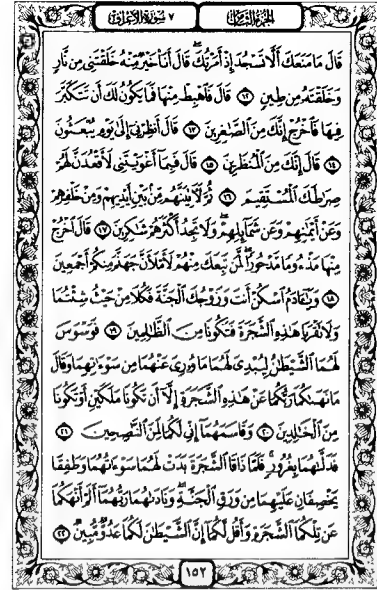 الجزء الثامن
٧ سورة الأعراف
قَالَ مَا مَنَعَكَ أَلَّا تَسْجُدَ إِذْ أَمَرْتُكَ ۖ قَالَ أَنَا۠ خَيْرٌ مِّنْهُ خَلَقْتَنِى مِن نَّارٍ
وَخَلَقْتَهُۥ مِن طِينٍ ١٢ قَالَ فَٱهْبِطْ مِنْهَا فَمَا يَكُونُ لَكَ أَن تَتَكَبَّرَ
فِيهَا فَٱخْرُجْ إِنَّكَ مِنَ ٱلصَّٰغِرِينَ ١٣ قَالَ أَنظِرْنِىٓ إِلَىٰ يَوْمِ يُبْعَثُونَ
١٤ قَالَ إِنَّكَ مِنَ ٱلْمُنظَرِينَ ١٥ قَالَ فَبِمَآ أَغْوَيْتَنِى لَأَقْعُدَنَّ لَهُمْ
صِرَٰطَكَ ٱلْمُسْتَقِيمَ ١٦ ثُمَّ لَءَاتِيَنَّهُم مِّنۢ بَيْنِ أَيْدِيهِمْ وَمِنْ خَلْفِهِمْ
وَعَنْ أَيْمَٰنِهِمْ وَعَن شَمَآئِلِهِمْ ۖ وَلَا تَجِدُ أَكْثَرَهُمْ شَٰكِرِينَ ١٧ قَالَ ٱخْرُجْ
مِنْهَا مَذْءُومًا مَّدْحُورًا ۖ لَّمَن تَبِعَكَ مِنْهُمْ لَأَمْلَأَنَّ جَهَنَّمَ مِنكُمْ أَجْمَعِينَ
١٨ وَيَٰٓـَٔادَمُ ٱسْكُنْ أَنتَ وَزَوْجُكَ ٱلْجَنَّةَ فَكُلَا مِنْ حَيْثُ شِئْتُمَا
وَلَا تَقْرَبَا هَٰذِهِ ٱلشَّجَرَةَ فَتَكُونَا مِنَ ٱلظَّٰلِمِينَ ١٩ فَوَسْوَسَ
لَهُمَا ٱلشَّيْطَٰنُ لِيُبْدِىَ لَهُمَا مَا وُۥرِىَ عَنْهُمَا مِن سَوْءَٰتِهِمَا وَقَالَ
مَا نَهَىٰكُمَا رَبُّكُمَا عَنْ هَٰذِهِ ٱلشَّجَرَةِ إِلَّآ أَن تَكُونَا مَلَكَيْنِ أَوْ تَكُونَا
مِنَ ٱلْخَٰلِدِينَ ٢٠ وَقَاسَمَهُمَآ إِنِّى لَكُمَا لَمِنَ ٱلنَّٰصِحِينَ ٢١
فَدَلَّىٰهُمَا بِغُرُورٍ ۚ فَلَمَّا ذَاقَا ٱلشَّجَرَةَ بَدَتْ لَهُمَا سَوْءَٰتُهُمَا وَطَفِقَا
يَخْصِفَانِ عَلَيْهِمَا مِن وَرَقِ ٱلْجَنَّةِ ۖ وَنَادَىٰهُمَا رَبُّهُمَآ أَلَمْ أَنْهَكُمَا
عَن تِلْكُمَا ٱلشَّجَرَةِ وَأَقُل لَّكُمَآ إِنَّ ٱلشَّيْطَٰنَ لَكُمَا عَدُوٌّ مُّبِينٌ ٢٢
١٥٢